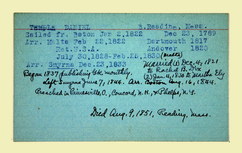 TEMPLE DANIEL b. Reading, Mass.
Sailed fr. Boston Jan 2, 1822 Dec 23, 1789
Arr. Malta Feb 22, 1822 Dartmouth 1817
Ret. U.S.A. Andover 1820
July 30, 1828-Feb 25, 1830
Arr. Smyrna Dec 23, 1833 Married (1) Dec 4, 1821
to Rachel B. Dix
Began 1837 publishing Gk. monthly. (2) Jan 4, 1830 to Martha Ely
Left Smyrna June 7, 1844. Arr. Boston Aug. 16, 1844.
Preached in O., Concord, N.H., & Phelps, N.Y.
Died Aug. 9, 1851, Reading, Mass.